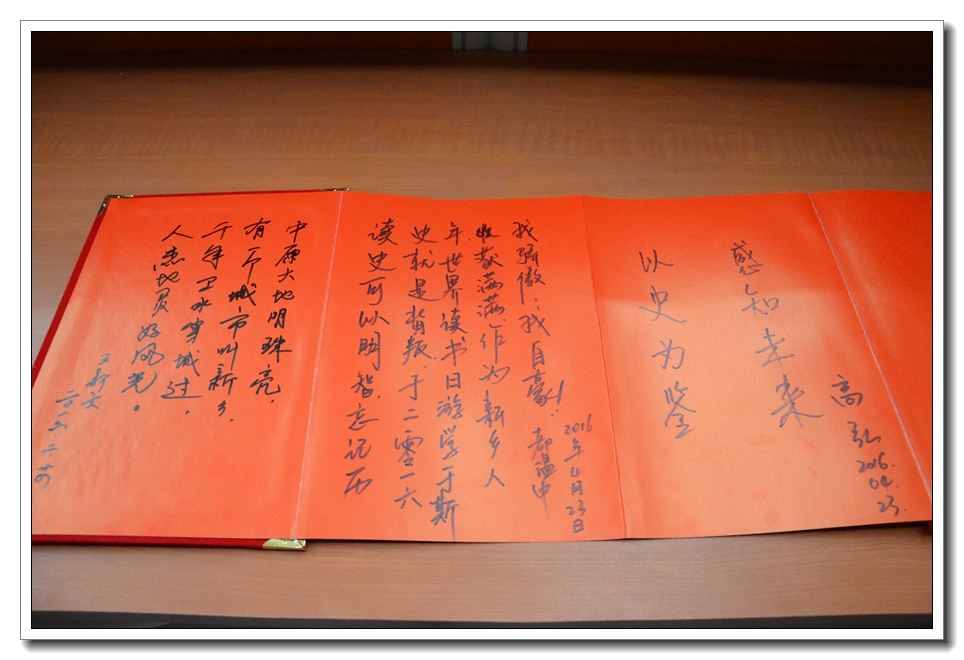 中原大地明珠亮，
有一个城市叫新乡，
千年卫水穿城过，
人杰地灵好风光。
读史可以明智，忘记历
史就是背叛，于二零一六
年世界读书日游学于斯
收获满满，作为新乡人
我骄傲；我自豪！
2016年4月23日
以史为鉴
感知未来
高弘
2016.
04.
23.